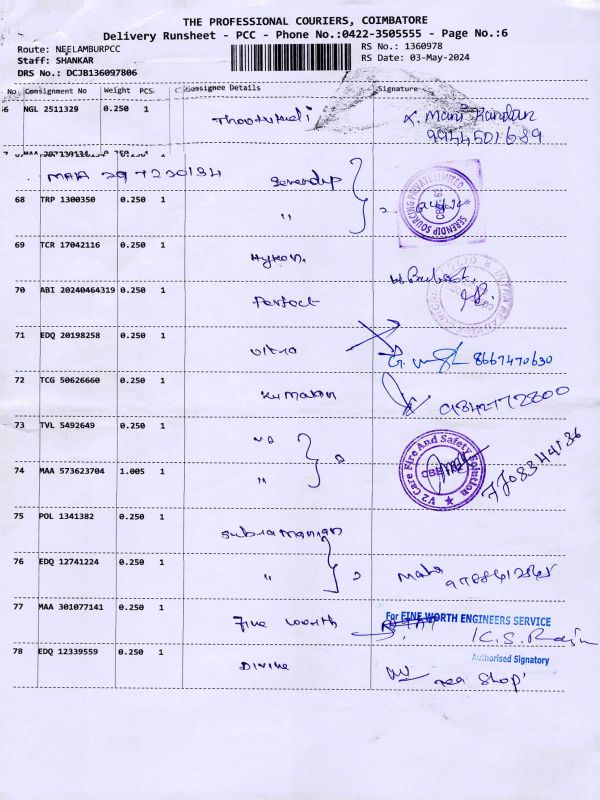 THE PROFESSIONAL COURIERS, COIMBATORE
Delivery Runsheet - PCC - Phone No.:0422-3505555 - Page No.:6
Route: NEELAMBURPCC
Staff: SHANKAR
DRS No.: DCJB136097806
RS No.: 1360978
RS Date: 03-May-2024
No. Consignment No Weight PCS Consignee Details Signature
66 NGL 2511329 0.250 1
K. Mani Kandan
9944501689
MAA 297230134 Serendip
68 TRP 1300350 0.250 1 "
SERENDIP SOURCING PRIVATE LIMITED
69 TCR 17042116 0.250 1 Hykon.
70 ABI 20240464319 0.250 1 Perfect
71 EDQ 20198258 0.250 1 Ultra
8667470630
72 TCG 50626660 0.250 1 Kumaran
9842772800
73 TVL 5492649 0.250 1 V2
V2 Care Fire And Safety Solution
74 MAA 573623704 1.005 1 "
75 POL 1341382 0.250 1 Subramanian
76 EDQ 12741224 0.250 1 " 2
77 MAA 301077141 0.250 1 Fine worth
For FINE WORTH ENGINEERS SERVICE
K.S. Raju
Authorised Signatory
78 EDQ 12339559 0.250 1 Divine
Tea Shop